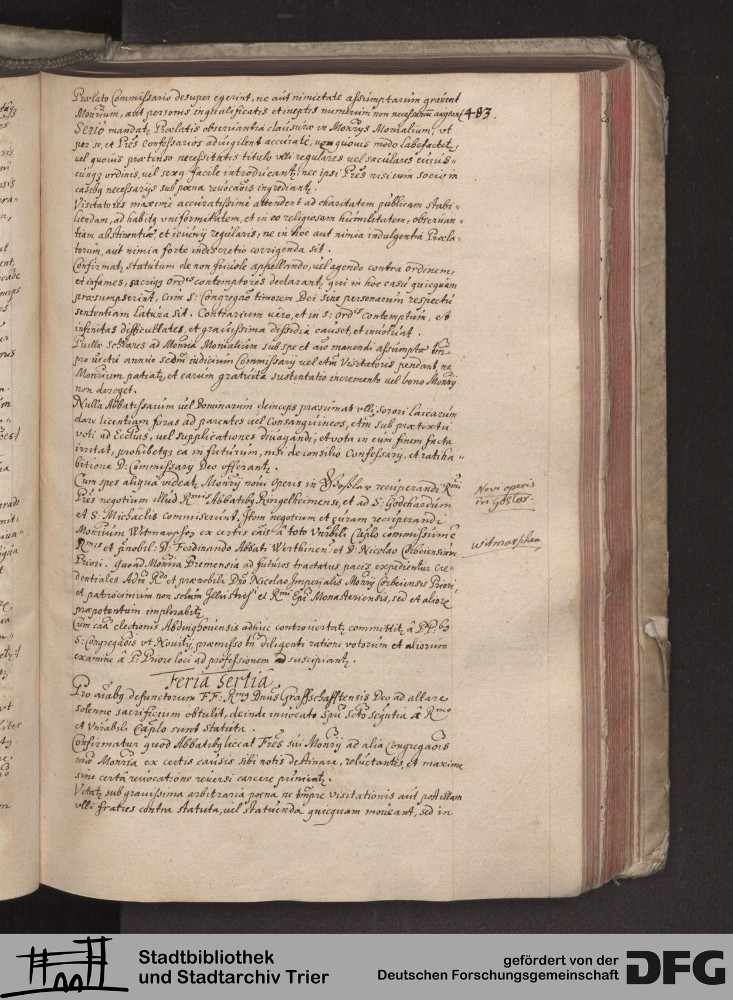 Prælato Commissario desuper egerint, ne aut nimietate assumptarum gravent
Monrium, aut personis inqualificatis et ineptis numerum non necessarium augeant. 483.
Serio mandatr Prælatis observantia clausuræ in Monrys Monialium, ut
per se, et Pres Confessarios advigilent accuratè, ne quovis modo labefactetr,
vel quovis prætenso necessitatis titulo ulli regulares vel sæculares cuius-
cunqz ordinis, vel sexq facile introducantr: nec ipsi Pres nisi cum socio in
casibq necessarijs sub poena revocaõis ingrediantr.
Visitatores maximè accuratissimè attendent ad charitatem publicam stabi-
liendam, ad habitq uniformitatem, et in eo religiosam humilitatem, observan-
tiam abstinentiæ, et ieiunij regularis, ne in hoc aut nimia indulgentia Præla-
torum, aut nimia forte indiscretio corrigenda sit.
Confirmatr statutum de non frivole appellando, vel agendo contra ordinem,
et infames, sacriqz Ordis contemptores declarantr, qui in hoc casu quicquam
præsumpserint, cum S: Congregaõ timorem Dei sine personarum respectu
sententiam latura sit. Contrarium vero, et in S: Ordis contemptum, et
infinitas difficultates, et gravissima dissidia causet, et involvat.
Puellæ Schlares ad Monria Monialium sub spe et aiõ manendi assumptæ tm-
pro victu annuè scdm iudicium Commissarij vel etm Visitatoris pendant, ne
Monrium patiatr, et earum gratuita sustentatio incremento vel bono Monrij
non deroget.
Nulla Abbatissarum vel Dominarum deinceps præsumat ulli Sorori Laicarum
dare licentiam foras ad parentes vel Consanguineos, etm sub prætextu
voti ad Ecclias, vel supplicationes divagandi; et vota in eum finem facta
irritat, prohibetqz ea in futurum, nisi de consilio Confessarij, et ratiha-
bitione D: Commissarij Deo offerantr.
Cum spes aliqua videatr Monrij novi Operis in Goslar recuperandi Rmi
Pres negotium illud Rmis Abbatibq Ringelheimensi, et ad S: Godehardum
et S: Michaelis commiserunt. Item negotium et curam recuperandi
Monrium Witmarsshoz ex certis cais à toto Vnrbili Caplo commissum e
Rmis et prænobil: D: Ferdinando Abbati Werthinen: et D: Nicolao Corbeiensium
Priori. Quoad Monria Bremensia ad futuros tractatus pacis expedientur cre-
dentiales Adm Rdo et prænobili Dno Nicolao Imperialis Monrij Corbeiensis Priori,
et patrocinium non solùm Illustrissi et Rmi Epi Monasteriensis, sed et alioræ
præpotentum implorabitr.
Cum caã electionis Abdinghovensis adhuc controvertatr, committitr à PPbq
S: Congregaõis ut Novitij, præmisso tñ diligenti ratione votorum et aliorum
examine à P: Priore loci ad professionem suscipiantr.
Feria Tertia
Pro aiãbq defunctorum FF: Rmq Dnus Graffschafftensis Deo ad altare
solenne sacrificium obtulit, deinde invocato Spu Scto seqntia à Rmo
et Vnrabili Caplo sunt statuta.
Confirmatur quod Abbatibq liceat Fres sui Monrij ad alia Congregaõis
nræ Monria ex certis causis sibi notis destinare, reluctantes, et maximè
sine certa revocatione reversi carcere puniantr.
Vetatr sub gravissima arbitraria poena ne tmpre visitationis aut post illam
ulli fratres contra statuta, vel statuenda quicquam moveant, sed in
Novi operis
in Goslar.
Witmarschen
Stadtbibliothek
und Stadtarchiv Trier
gefördert von der
Deutschen Forschungsgemeinschaft
DFG